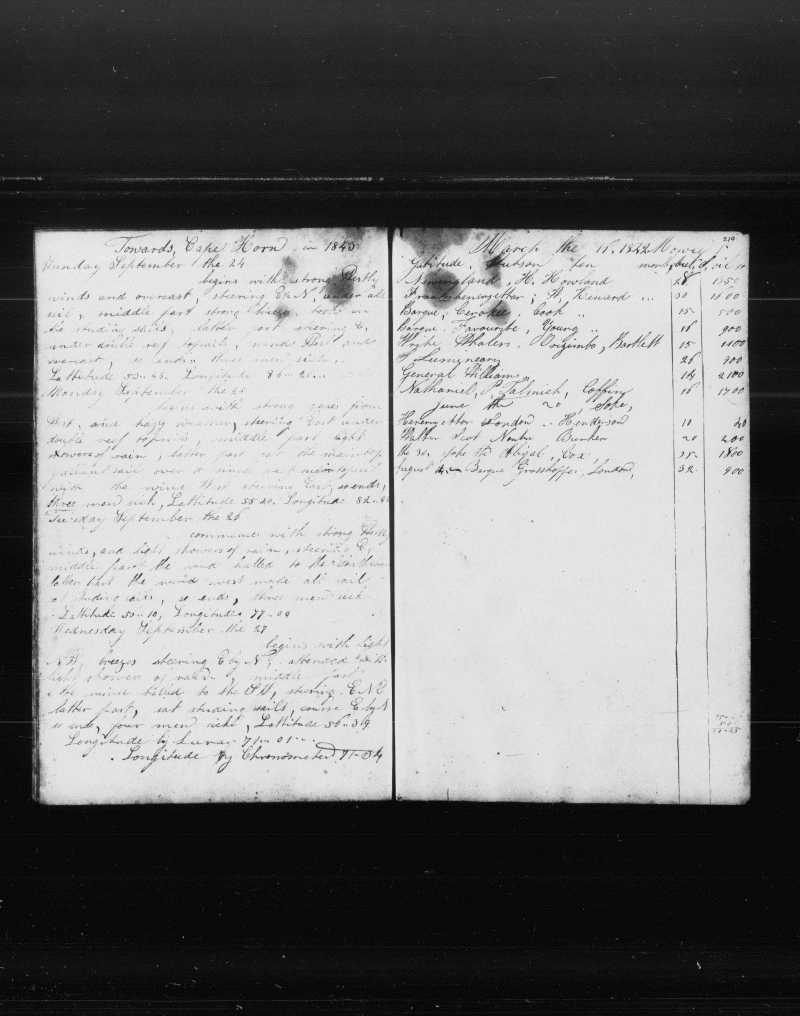 Towards, Cape Horn in 1843
Sunday September the 24
begins with strong
winds and overcast, steering E by N, under all
sail, middle part strong breeze took in
the studing sails, latter part steering E,
under double reef topsails, wind West and
overcast, so ends, three men sick
Lattitude 53 - 43. Longitude 86 - 20
Monday September the 25
begins with strong gales from
West, and hazy weather, steering East under
double reef topsails, middle part light
showers of rain, latter part set the maintop
gallant sail over a single reef maintopsail
the wind West steering East, so ends,
three men sick, Lattitude 55 20. Longitude 82
Tuesday September the 26
commences with strong
winds, and light showers of rain, steering E
middle part the wind halled to the
latter part the wind west made all sail
set studing sails, so ends, three men sick
Lattitude 55 - 10, Longitude 77 - 09
Wednesday September the 27
begins with light
N W, breezes steering E by N, attended with
light showers of rain, middle part
the wind halled to the S W, steering E N E
latter part, sat studing sails, course E by N
so ends, four men sick, Lattitude 56 - 39
Longitude by Lunar 71 - 01
Longitude by Chronometer 71 - 04
219
March the 16, 1842 Mowie
Gratitude, Stutson ten months, but, oil
Newengland, H, Howland 28 1150
30 1500
Barque, Cerokee, Cook 15 500
Barque Favourite, Young 16 900
Write Whalers. Onyimbo, Bartlett 15 1100
26 900
General Williams 14 2100
Nathaniel, P, Talmich, Coffin 16 1700
June the 20, Spke,
London Henderson 10
Walter Scot Bunker 20 200
the 30, spke the Abigal, Cox, 35 1800
August Barque Grasshopper, London, 32 900